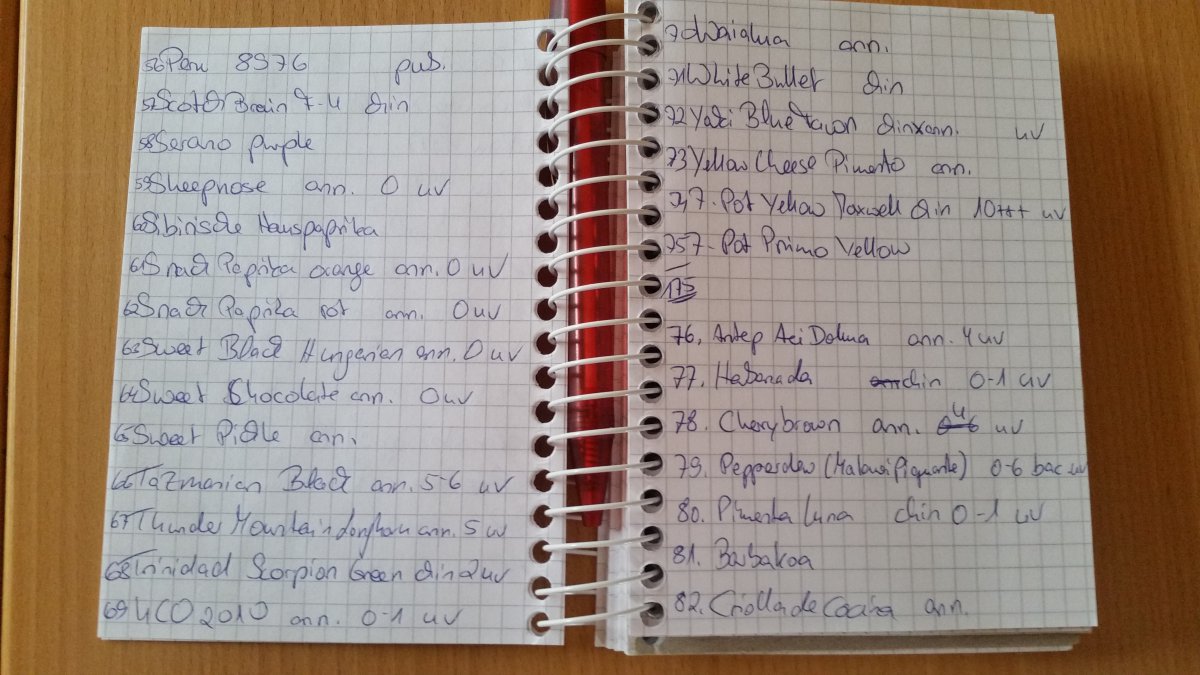 56 Peru 8976 pub.
57 Scotch Brain 7-4 chin
58 Serano purple
59 Sheepnose ann. 0 uv
60 Sibirische Hauspaprika
61 Snack Paprika orange ann. 0 uv
62 Snack Paprika rot ann. 0 uv
63 Sweet Black Hungarian ann. 0 uv
64 Sweet Chocolate ann. 0 uv
65 Sweet Pickle ann.
66 Tazmanian Black ann. 5-6 uv
67 Thunder Mountain Longhorn ann. 5 uv
68 Trinidad Scorpion Green chin 2 uv
69 UCO 2010 ann. 0-1 uv
70 Waialua ann.
71 White Bullet chin
72 Yaki Blue Fawn chinxann. uv
73 Yellow Cheese Pimento ann.
747-Pot Yellow chin 10+++ uv
757-Pot Primo Yellow
175
76. Antep Aci Dolma ann. 4 uv
77. Habanada ann chin 0-1 uv
78. Cherry brown ann. 4 uv
79. Pepperdew (Malawi Piquante) 0-6 bac uv
80. Pimenta Luna chin 0-1 uv
81. Barbakoa
82. Criolla de Cocina ann.